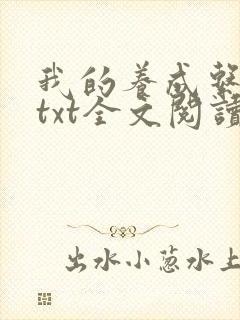 我的養成
txt全文閱讀
出水小葱水上